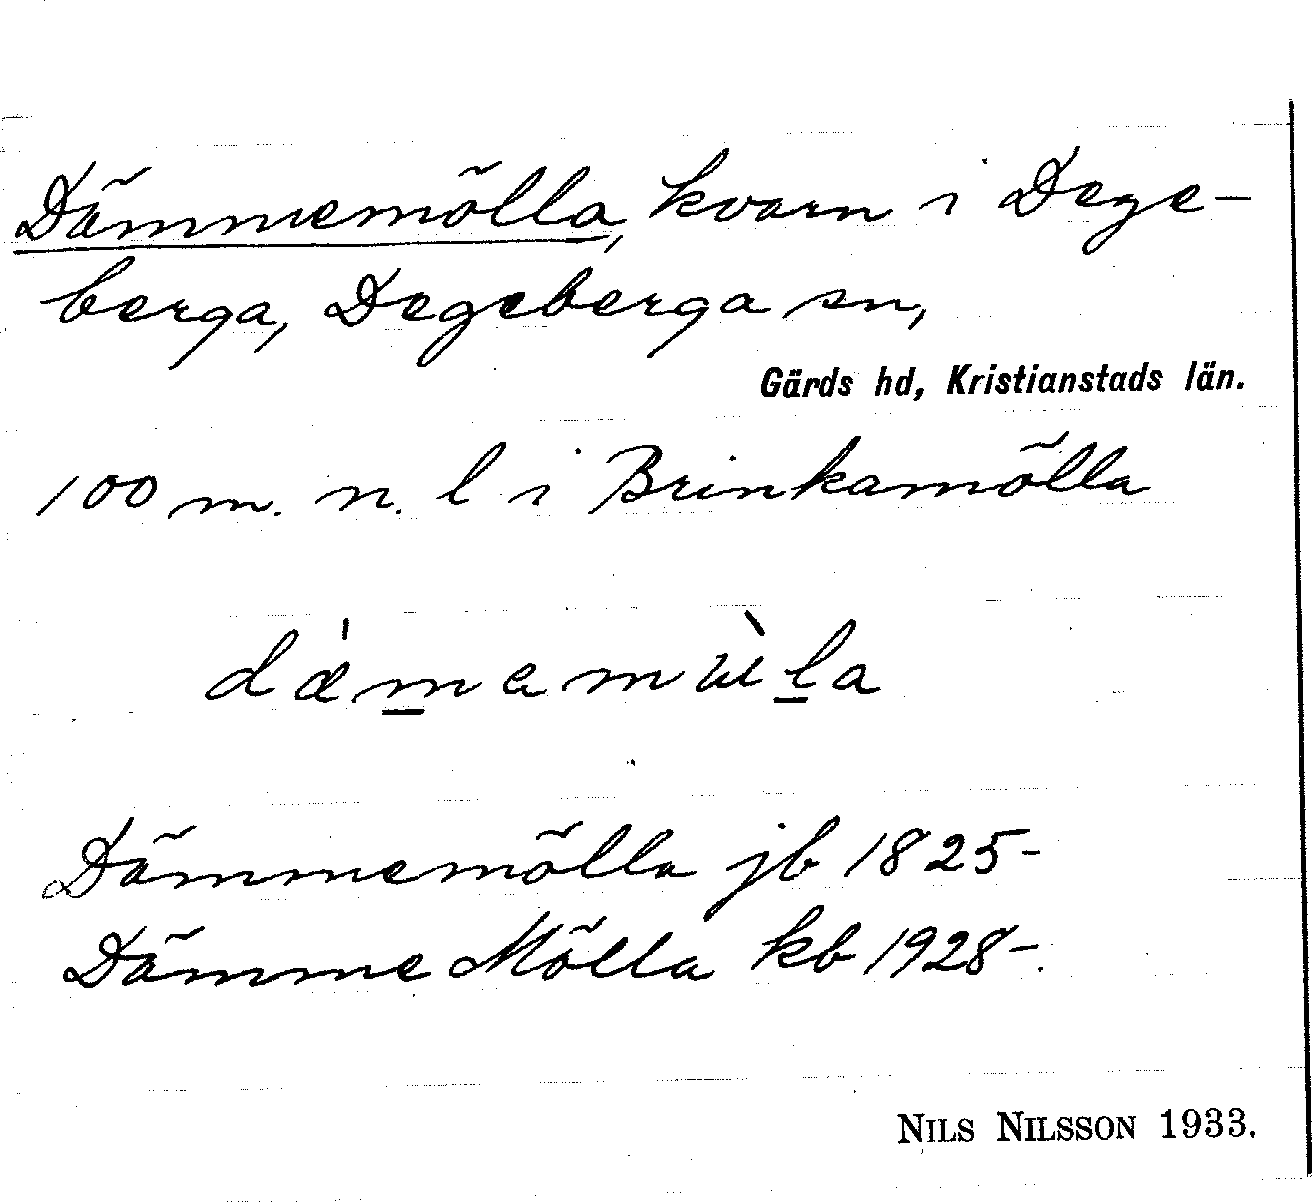 Dämmemölla, kvarn i Dege-
berga, Degeberga sn,
Gärds hd, Kristianstads län.
100 m. n. l i Brinkamölla
Dämmemölla jb 1825-
Dämme Mölla kb 1928-.
NILS NILSSON 1933.